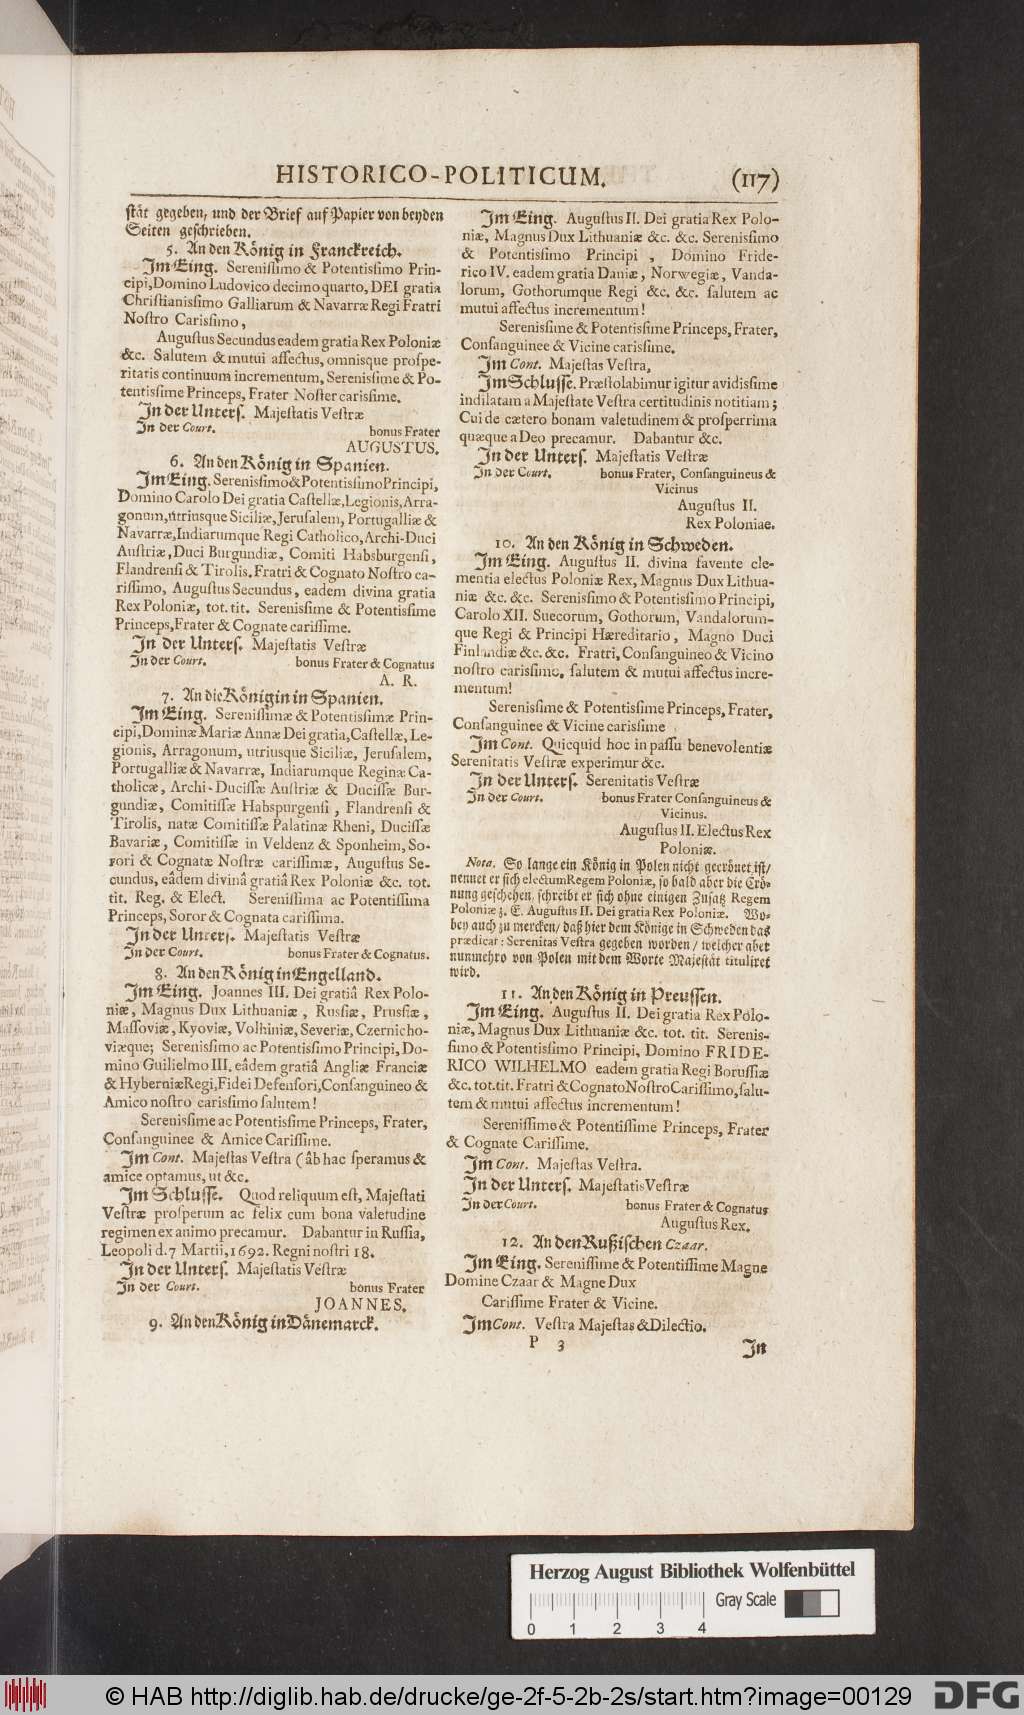 HISTORICO-POLITICUM. (117)
ſtät gegeben, und der Brief auf Papier von beyden
Seiten geſchrieben.
5. An den König in Franckreich.
Im Eing. Sereniſſimo & Potentiſſimo Prin-
cipi, Domino Ludovico decimo quarto, DEI gratia
Chriſtianiſſimo Galliarum & Navarræ Regi Fratri
Noſtro Cariſſimo,
Auguſtus Secundus eadem gratia Rex Poloniæ
&c. Salutem & mutui affectus, omnisque proſpe-
ritatis continuum incrementum, Sereniſſime & Po-
tentiſſime Princeps, Frater Noſter cariſſime.
In der Unterſ. Majeſtatis Veſtræ
In der Court. bonus Frater
AUGUSTUS.
6. An den König in Spanien.
Im Eing. Sereniſſimo & Potentiſſimo Principi,
Domino Carolo Dei gratia Caſtellæ, Legionis, Arra-
gonum, utriusque Siciliæ, Jeruſalem, Portugalliæ &
Navarræ, Indiarumque Regi Catholico, Archi-Duci
Auſtriæ, Duci Burgundiæ, Comiti Habsburgenſi,
Flandrenſi & Tirolis. Fratri & Cognato Noſtro ca-
riſſimo, Auguſtus Secundus, eadem divina gratia
Rex Poloniæ, tot. tit. Sereniſſime & Potentiſſime
Princeps, Frater & Cognate cariſſime.
In der Unterſ. Majeſtatis Veſtræ
In der Court. bonus Frater & Cognatus
A. R.
7. An die Königin in Spanien.
Im Eing. Sereniſſimæ & Potentiſſimæ Prin-
cipi, Dominæ Mariæ Annæ Dei gratia, Caſtellæ, Le-
gionis, Arragonum, utriusque Siciliæ, Jeruſalem,
Portugalliæ & Navarræ, Indiarumque Reginæ Ca-
tholicæ, Archi-Duciſſæ Auſtriæ & Duciſſæ Bur-
gundiæ, Comitiſſæ Habspurgenſi, Flandrenſi &
Tirolis, natæ Comitiſſæ Palatinæ Rheni, Duciſſæ
Bavariæ, Comitiſſæ in Veldenz & Sponheim, So-
rori & Cognatæ Noſtræ cariſſimæ, Auguſtus Se-
cundus, eâdem divinâ gratiâ Rex Poloniæ &c. tot.
tit. Reg. & Elect. Sereniſſima ac Potentiſſima
Princeps, Soror & Cognata cariſſima.
In der Unterſ. Majeſtatis Veſtræ
In der Court. bonus Frater & Cognatus.
8. An den König in Engelland.
Im Eing. Joannes III. Dei gratiâ Rex Polo-
niæ, Magnus Dux Lithuaniæ, Ruſſiæ, Pruſſiæ,
Maſſoviæ, Kyoviæ, Volhiniæ, Severiæ, Czernicho-
viæque; Sereniſſimo ac Potentiſſimo Principi, Do-
mino Guilielmo III. eâdem gratiâ Angliæ Franciæ
& Hyberniæ Regi, Fidei Defenſori, Conſanguineo &
Amico noſtro cariſſimo ſalutem!
Sereniſſime ac Potentiſſime Princeps, Frater,
Conſanguinee & Amice Cariſſime.
Im Cont. Majeſtas Veſtra (âb hac ſperamus &
amice optamus, ut &c.
Im Schluſſe. Quod reliquum eſt, Majeſtati
Veſtræ proſperum ac felix cum bona valetudine
regimen ex animo precamur. Dabantur in Ruſſia,
Leopoli d. 7 Martii, 1692. Regni noſtri 18.
In der Unterſ. Majeſtatis Veſtræ
In der Court. bonus Frater
JOANNES.
9. An den König in Dänemarck.
Im Eing. Auguſtus II. Dei gratia Rex Polo-
niæ, Magnus Dux Lithuaniæ &c. &c. Sereniſſimo
& Potentiſſimo Principi, Domino Fride-
rico IV. eadem gratia Daniæ, Norwegiæ, Vanda-
lorum, Gothorumque Regi &c. &c. ſalutem ac
mutui affectus incrementum!
Sereniſſime & Potentiſſime Princeps, Frater,
Conſanguinee & Vicine cariſſime.
Im Cont. Majeſtas Veſtra,
Im Schluſſe. Præſtolabimur igitur avidiſſime
indilatam a Majeſtate Veſtra certitudinis notitiam;
Cui de cætero bonam valetudinem & proſperrima
quæque a Deo precamur. Dabantur &c.
In der Unterſ. Majeſtatis Veſtræ
In der Court. bonus Frater, Conſanguineus &
Vicinus
Auguſtus II.
Rex Poloniae.
10. An den König in Schweden.
Im Eing. Auguſtus II. divina favente cle-
mentia electus Poloniæ Rex, Magnus Dux Lithua-
niæ &c. &c. Sereniſſimo & Potentiſſimo Principi,
Carolo XII. Suecorum, Gothorum, Vandalorum-
que Regi & Principi Hæreditario, Magno Duci
Finlandiæ &c. &c. Fratri, Conſanguineo & Vicino
noſtro cariſſimo, ſalutem & mutui affectus incre-
mentum!
Sereniſſime & Potentiſſime Princeps, Frater,
Conſanguinee & Vicine cariſſime
Im Cont. Quicquid hoc in paſſu benevolentiæ
Serenitatis Veſtræ experimur &c.
In der Unterſ. Serenitatis Veſtræ
In der Court. bonus Frater Conſanguineus &
Vicinus.
Auguſtus II. Electus Rex
Poloniæ.
Nota. So lange ein König in Polen nicht gecrönet iſt/
nennet er ſich electum Regem Poloniæ, ſo bald aber die Crö-
nung geſchehen, ſchreibt er ſich ohne einigen Zuſatz Regem
Poloniæ z. E. Auguſtus II. Dei gratia Rex Poloniæ. Wo-
bey auch zu mercken/ daß hier dem Könige in Schweden das
prædicat: Serenitas Veſtra gegeben worden/ welcher aber
nunmehro von Polen mit dem Worte Majeſtät tituliret
wird.
11. An den König in Preuſſen.
Im Eing. Auguſtus II. Dei gratia Rex Polo-
niæ, Magnus Dux Lithuaniæ &c. tot. tit. Serenis-
ſimo & Potentiſſimo Principi, Domino FRIDE-
RICO WILHELMO eadem gratia Regi Boruſſiæ
&c. tot. tit. Fratri & Cognato Noſtro Cariſſimo, ſalu-
tem & mutui affectus incrementum!
Sereniſſime & Potentiſſime Princeps, Frater
& Cognate Cariſſime.
Im Cont. Majeſtas Veſtra.
In der Unterſ. Majeſtatis Veſtræ
In der Court. bonus Frater & Cognatus
Auguſtus Rex.
12. An den Rußiſchen Czaar.
Im Eing. Sereniſſime & Potentiſſime Magne
Domine Czaar & Magne Dux
Cariſſime Frater & Vicine.
Im Cont. Veſtra Majeſtas & Dilectio.
P 3 In
Herzog August Bibliothek Wolfenbüttel
Gray Scale
0 1 2 3 4
© HAB http://diglib.hab.de/drucke/ge-2f-5-2b-2s/start.htm?image=00129 DFG